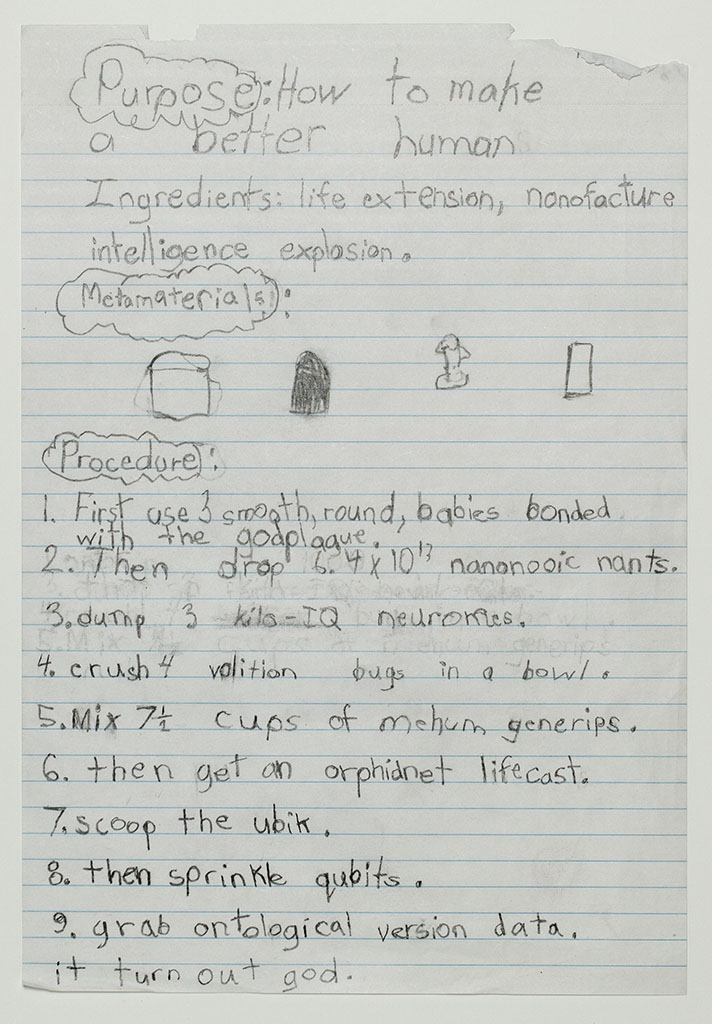 Purpose: How to make
a better human
Ingredients: life extension, nanofacture
intelligence explosion.
Metamaterials:
Procedure:
1. First use 3 smooth, round, babies bonded
with the godplague.
2. Then drop 6.4 x 10¹³ nanonooic nants.
3. dump 3 kilo-IQ neuromes.
4. crush 4 volition bugs in a bowl.
5. Mix 7½ cups of mehum generips.
6. then get an orphidnet lifecast.
7. scoop the ubik.
8. then sprinkle qubits.
9. grab ontological version data.
it turn out god.